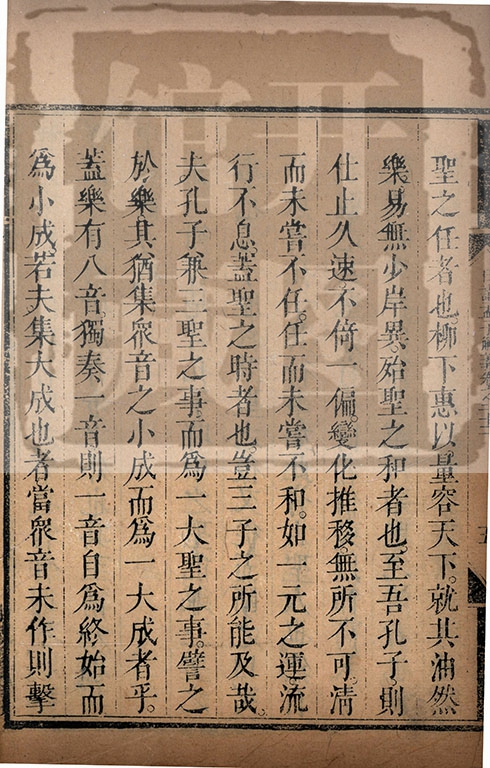 聖之任者也。柳下惠以量容天下。就其油然
樂易。無少岸異。殆聖之和者也。至吾孔子。則
仕止久速。不倚一偏。變化推移。無所不可。清
而未嘗不任。任而未嘗不和。如一元之運。流
行不息。蓋聖之時者也。豈三子之所能及哉。
夫孔子兼三聖之事。而為一大聖之事。譬之
於樂。其猶集衆音之小成而為一大成者乎。
蓋樂有八音。獨奏一音。則一音自為終始。而
為小成。若夫集大成也者。當衆音未作。則擊